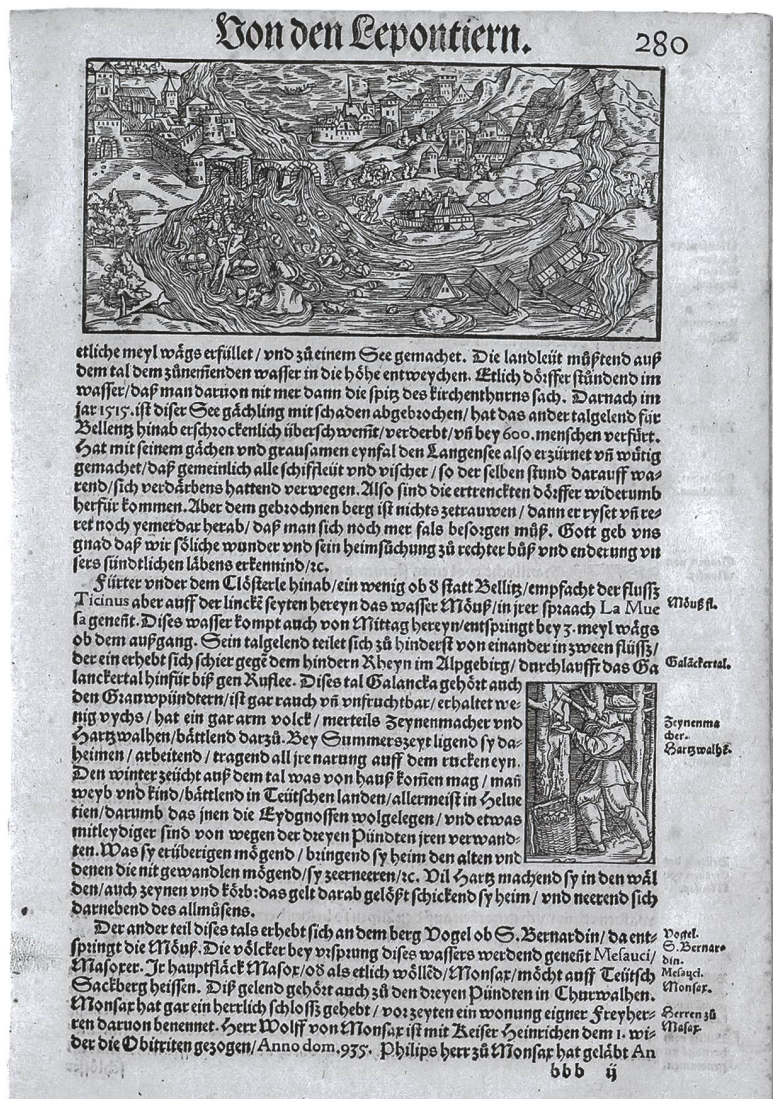 Von den Lepontiern.
280
etliche meyl wägs erfüllet / vnd zů einem See gemachet. Die landleüt müßtend auß
dem tal dem zůnem̃enden wasser in die höhe entweychen. Etlich dörffer stůndend im
wasser / daß man daruon nit mer dann die spitz des kirchenthurns sach. Darnach im
jar 1515. ist diser See gächling mit schaden abgebrochen / hat das ander talgelend für
Bellentz hinab erschrockenlich überschwem̃t / verderbt / vñ bey 600. menschen verfürt.
Hat mit seinem gächen vnd grausamen eynfal den Langensee also erzürnet vñ wütig
gemachet / daß gemeinlich alle schiffleüt vnd vischer / so der selben stund darauff wa-
rend / sich verdärbens hattend verwegen. Also sind die ertrenckten dörffer widerumb
herfür kommen. Aber dem gebrochnen berg ist nichts zetrauwen / dann er ryset vñ re-
ret noch yemerdar herab / daß man sich noch mer fals besorgen můß. Gott geb vns
gnad daß wir söliche wunder vnd sein heimsůchung zů rechter bůß vnd enderung vn
sers sündtlichen läbens erkennind / ꝛc.
Fürter vnder dem Clösterle hinab / ein wenig ob d statt Bellitz / empfacht der flussz
Ticinus aber auff der linckẽ seyten hereyn das wasser Möuß / in jrer spraach La Mue
sa geneñt. Dises wasser kompt auch von Mittag hereyn / entspringt bey 3. meyl wägs
ob dem außgang. Sein talgelend teilet sich zů hinderst von einander in zween flüssz /
der ein erhebt sich schier gegẽ dem hindern Rheyn im Alpgebirg / durchlaufft das Ga
lanckertal hinfür biß gen Ruflee. Dises tal Galancka gehört auch
den Grauwpündtern / ist gar rauch vñ vnfruchtbar / erhaltet we-
nig vychs / hat ein gar arm volck / merteils Zeynenmacher vnd
Hartzwalhen / bättlend darzů. Bey Summerszeyt ligend sy da-
heimen / arbeitend / tragend all jre narung auff dem rucken eyn.
Den winter zeücht auß dem tal was von hauß kom̃en mag / mañ
weyb vnd kind / bättlend in Teütschen landen / allermeist in Helue
tien / darumb das jnen die Eydgnossen wolgelegen / vnd etwas
mitleydiger sind von wegen der dreyen Pündten jren verwand-
ten. Was sy erüberigen mögend / bringend sy heim den alten vnd
denen die nit gewandlen mögend / sy zeerneeren / ꝛc. Vil Hartz machend sy in den wäl
den / auch zeynen vnd körb: das gelt darab gelößt schickend sy heim / vnd neerend sich
darnebend des allmůsens.
Der ander teil dises tals erhebt sich an dem berg Vogel ob S. Bernardin / da ent-
springt die Möuß. Die völcker bey vrsprung dises wassers werdend geneñt Mesauci /
Masoxer. Jr hauptfläck Masox / od als etlich wöllẽd / Monsax / möcht auff Teütsch
Sackberg heissen. Diß gelend gehört auch zů den dreyen Pündten in Churwalhen.
Monsax hat gar ein herrlich schlossz gehebt / vor zeyten ein wonung eigner Freyher-
ren daruon benennet. Herr Wolff von Monsax ist mit Keiser Heinrichen dem 1. wi-
der die Obitriten gezogen / Anno dom. 935. Philips herr zů Monsax hat geläbt An
bbb ij
Möuß fl.
Galäckertal.
Zeynenma
cher.
Hartzwalhẽ.
Vogel.
S. Bernar-
din.
Mesauci.
Monsax.
Herren zů
Masax.